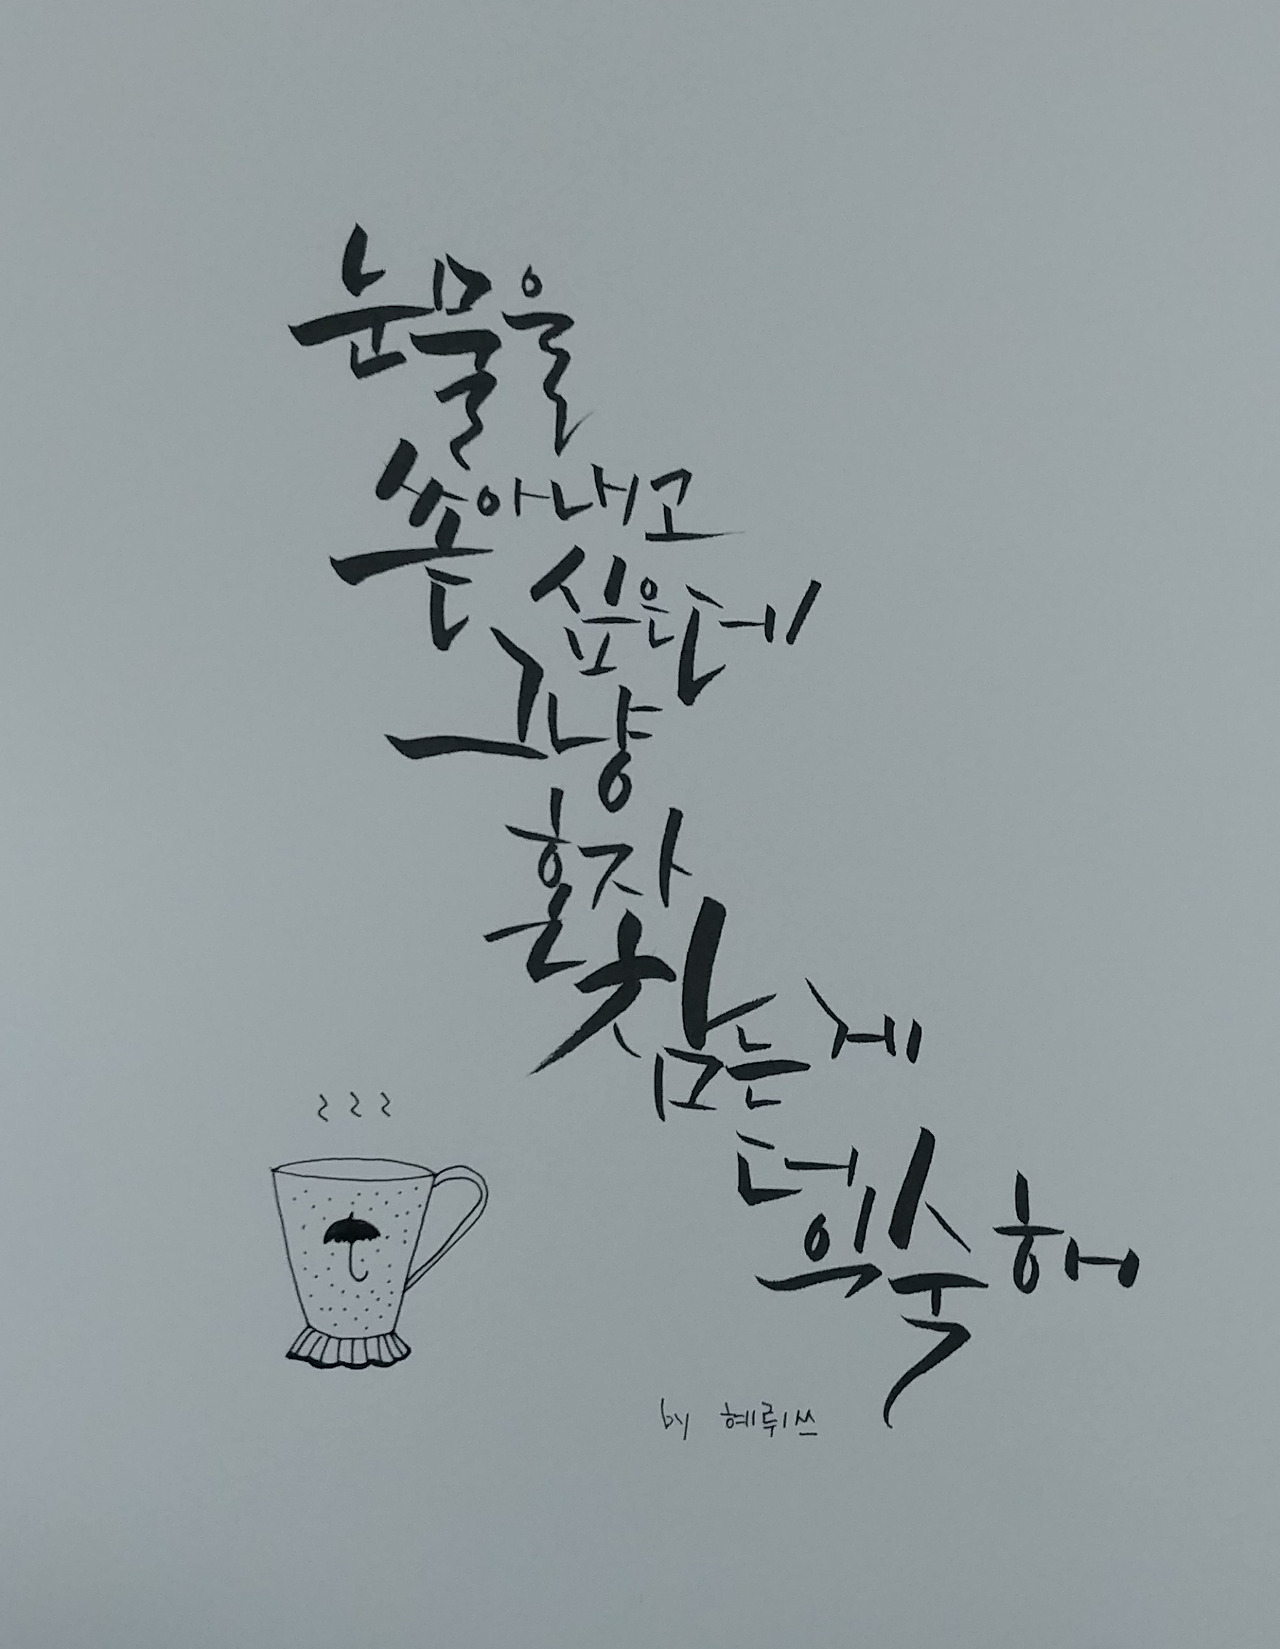 눈물을
쏟아내고
싶은데
그냥
혼자
참는게
더
익숙해
by 혜뤼쓰